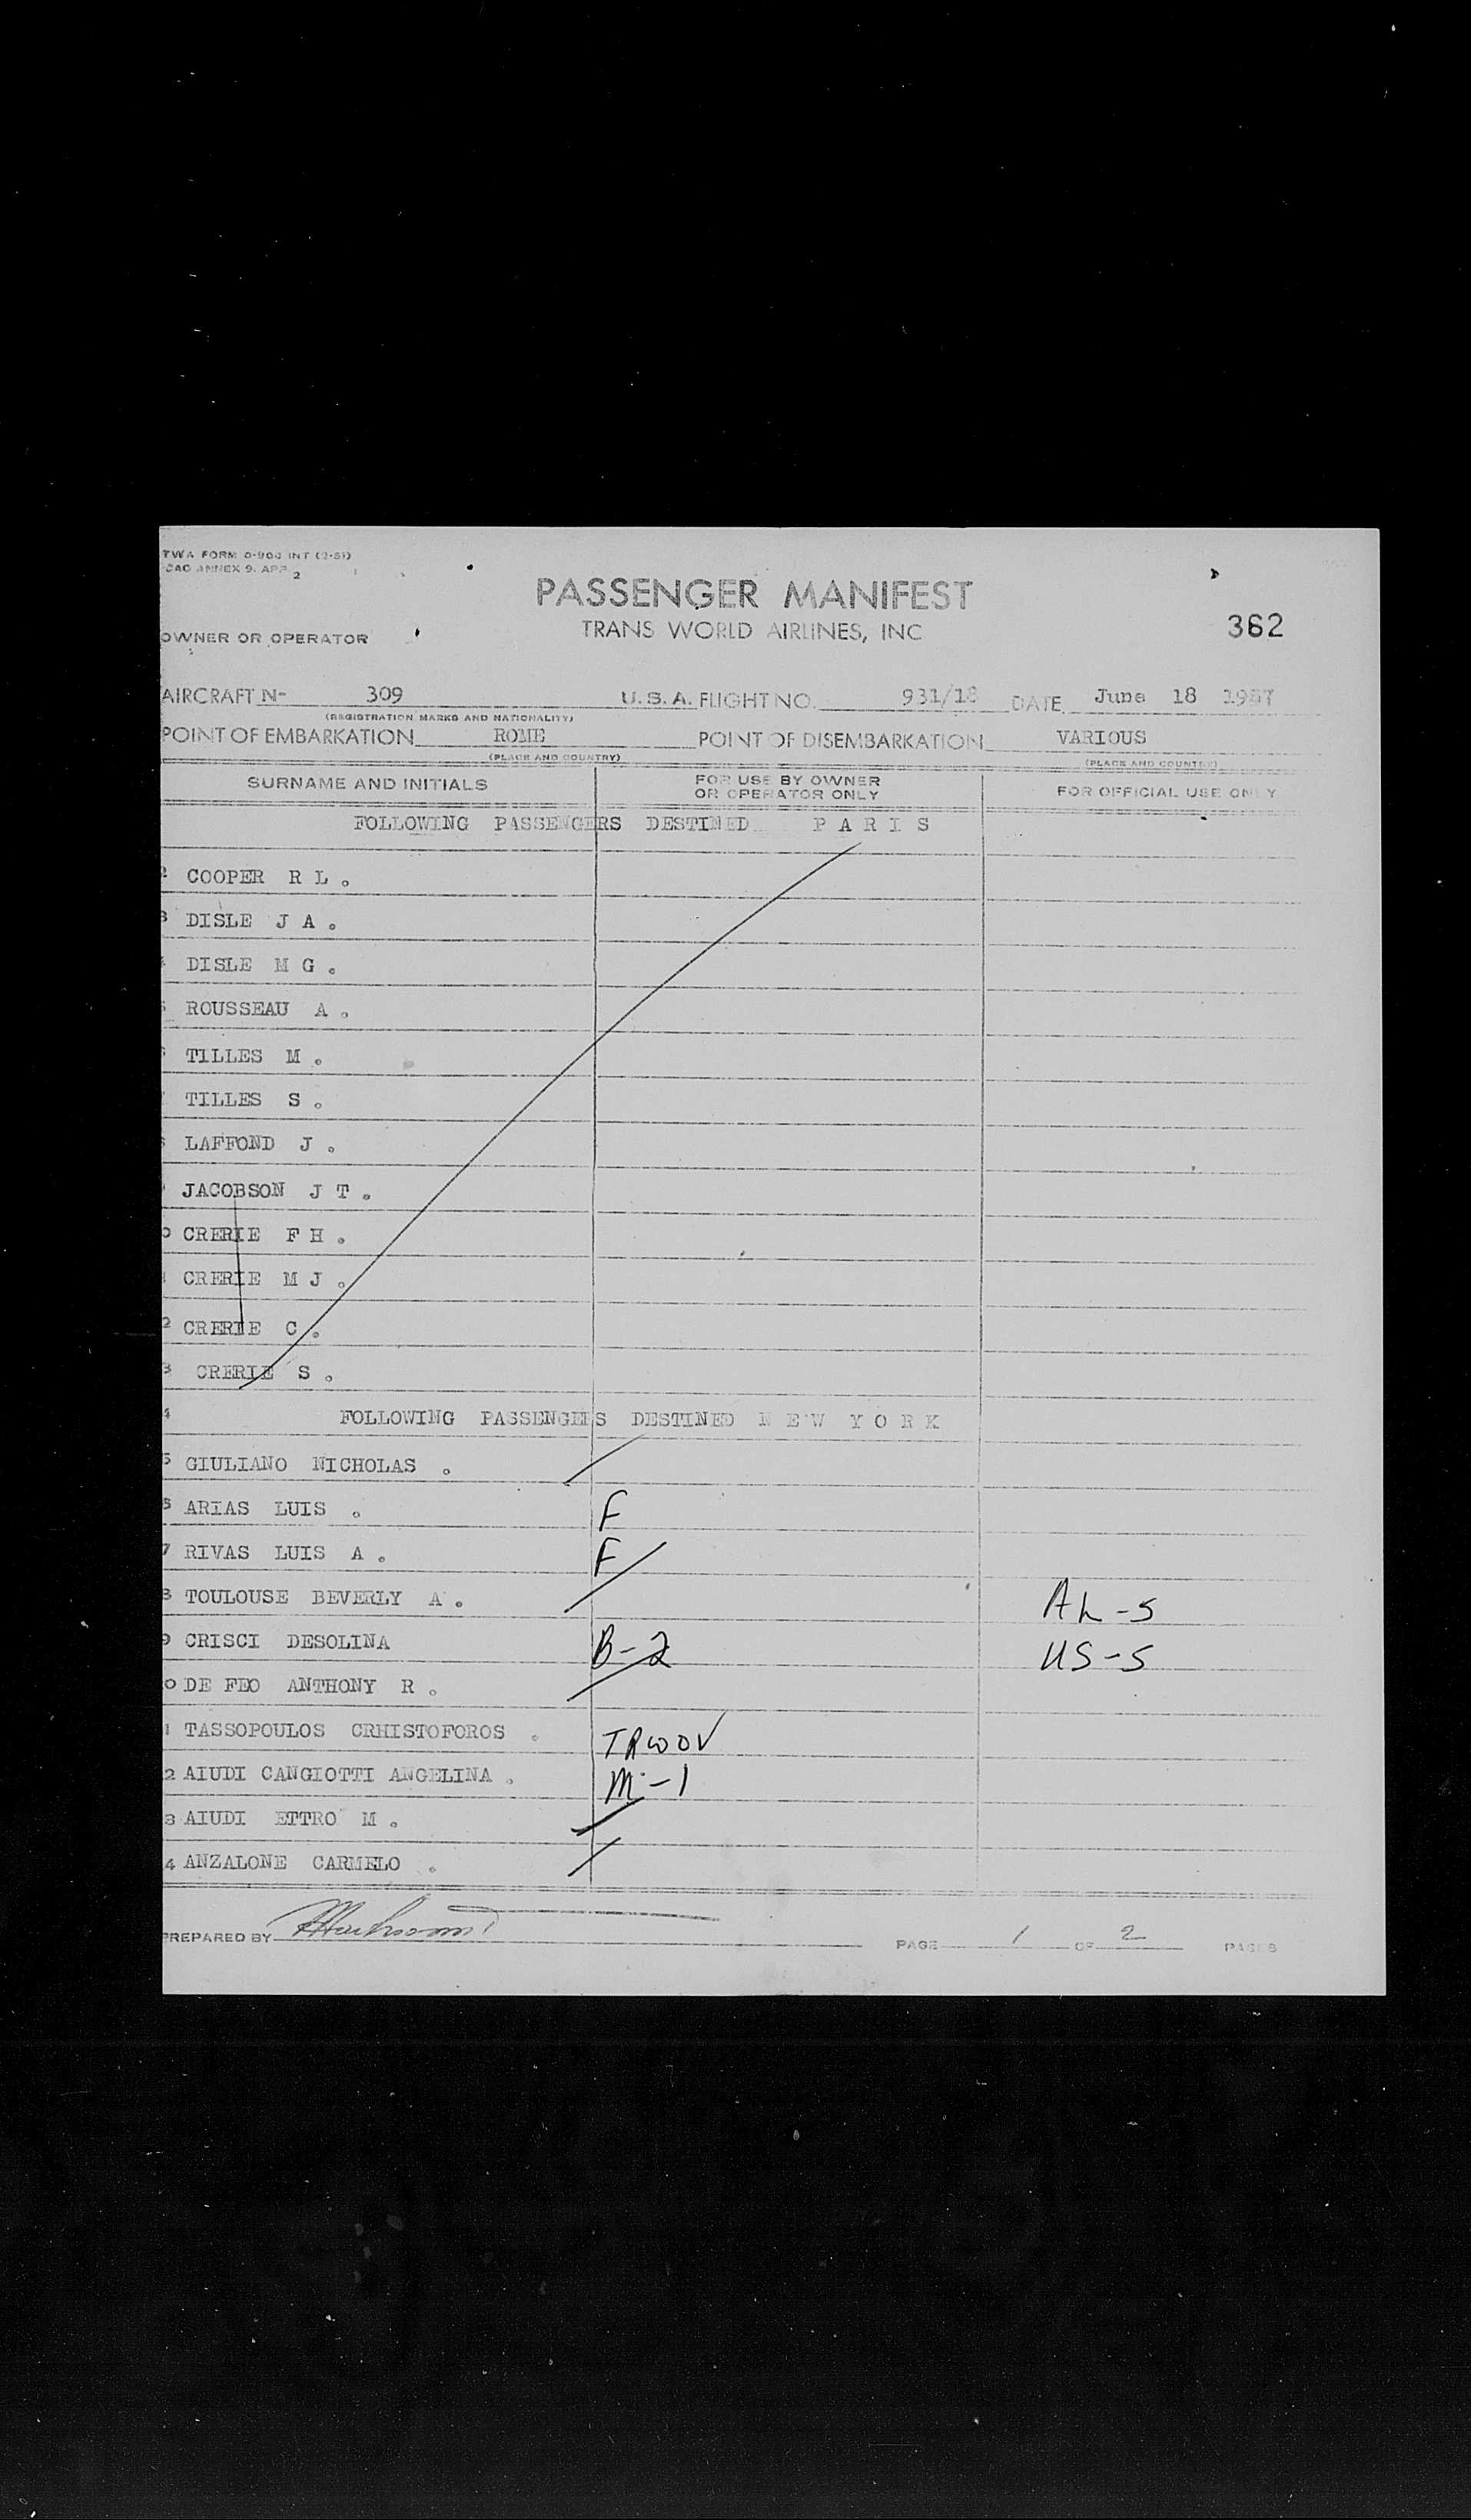 TWA FORM 0-900 INT (2-51)
ICAO ANNEX 9. APP 2
PASSENGER MANIFEST
362
TRANS WORLD AIRLINES, INC
OWNER OR OPERATOR
AIRCRAFT N- 309 U.S.A. FLIGHT NO. 931/18 DATE June 18 1957
(REGISTRATION MARKS AND NATIONALITY)
POINT OF EMBARKATION ROME POINT OF DISEMBARKATION VARIOUS
(PLACE AND COUNTRY) (PLACE AND COUNTRY)
SURNAME AND INITIALS FOR USE BY OWNER OR OPERATOR ONLY FOR OFFICIAL USE ONLY
FOLLOWING PASSENGERS DESTINED P A R I S
2 COOPER R L .
3 DISLE J A .
DISLE M G .
ROUSSEAU A .
TILLES M .
TILLES S .
LAFFOND J .
JACOBSON J T .
0 CRERIE F H .
1 CRERIE M J .
2 CRERIE C .
3 CRERIE S .
4 FOLLOWING PASSENGERS DESTINED N E W Y O R K
5 GIULIANO NICHOLAS .
6 ARIAS LUIS . F
7 RIVAS LUIS A . F
8 TOULOUSE BEVERLY A . AL-5
9 CRISCI DESOLINA B-2 US-5
0 DE FEO ANTHONY R .
1 TASSOPOULOS CRHISTOFOROS . TRWOV
2 AIUDI CANGIOTTI ANGELINA . M-1
3 AIUDI ETTRO M .
4 ANZALONE CARMELO .
PREPARED BY PAGE 1 OF 2 PAGES